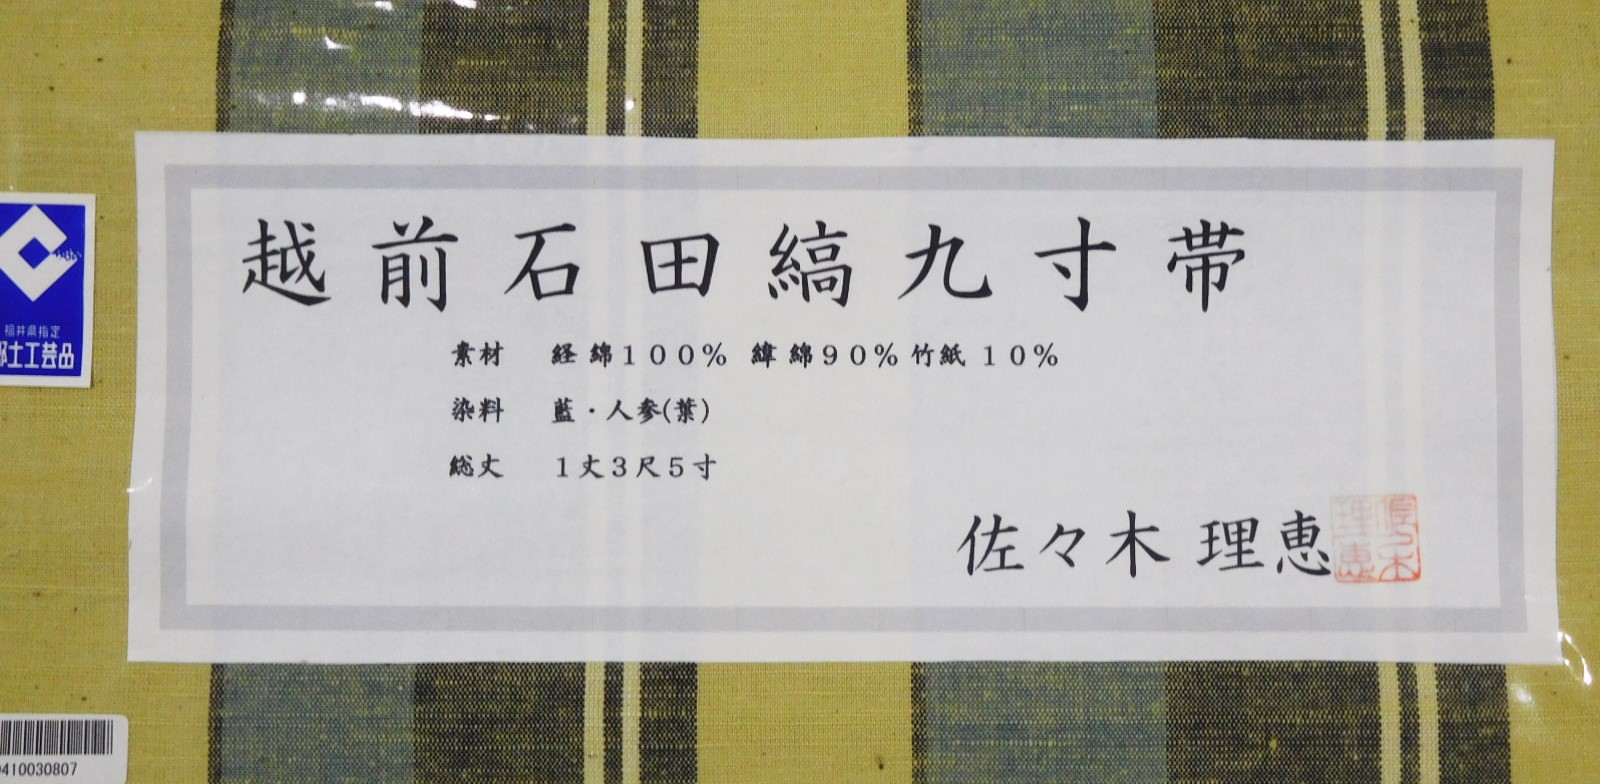 越前石田縞九寸帯
素材 経綿100% 緯綿90%竹紙10%
染料 藍・人参(葉)
総丈 1丈3尺5寸
佐々木 理恵
佐々木理恵
福井県指定
郷土工芸品
410030807